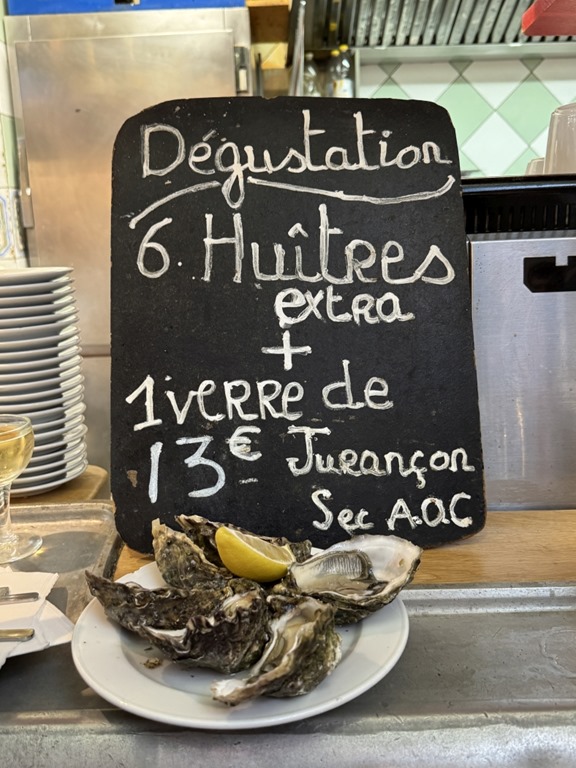 Dégustation
6. Huîtres
extra
+
1 verre de
13 € Jurançon
Sec A.O.C